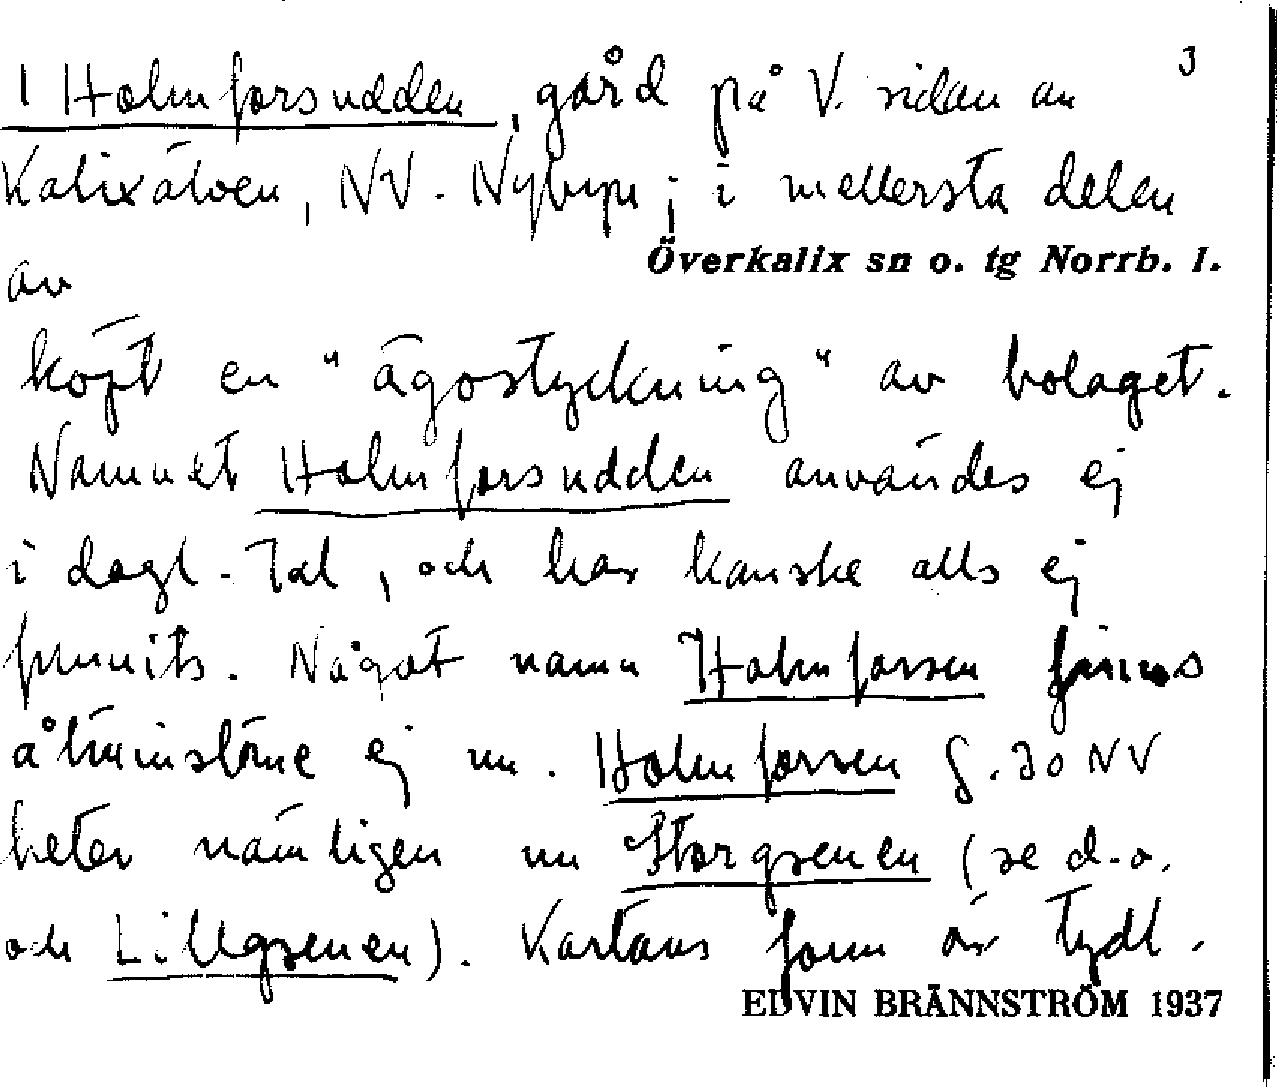 3
1 Holmforsudden, gård på V. sidan av
Kalixälven, NV. Nybyn; i mellersta delen
Överkalix sn o. tg Norrb. l.
av
köpt en "ägostyckning" av bolaget.
Namnet Holmforsudden användes ej
i dagl. tal, och har kanske alls ej
funnits. Något namn Holmforsen finns
åtminstone ej nu. Holmforsen g. 30 NV
heter nämligen nu Storgrenen (se d.o.
och Lillgrenen). Kartans form är tydl.
EDVIN BRÄNNSTRÖM 1937